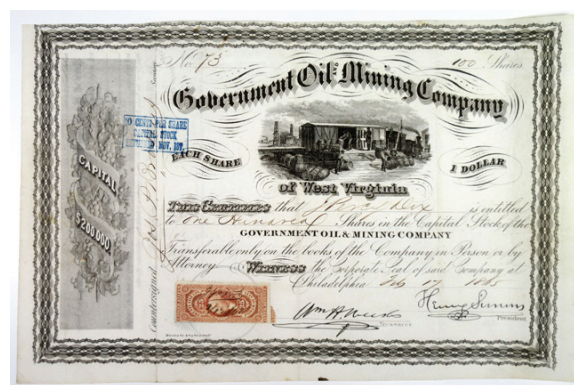 No. 73
100 Shares
Government Oil & Mining Company
EACH SHARE
1 DOLLAR
of West Virginia
CAPITAL
$200,000
THIS CERTIFIES that is entitled
to One Hundred Shares in the Capital Stock of the
GOVERNMENT OIL & MINING COMPANY
Transferable only on the books of the Company in Person or by
Attorney.
WITNESS the Corporate Seal of said Company at
Philadelphia 1865
Countersigned
Henry Simons
President